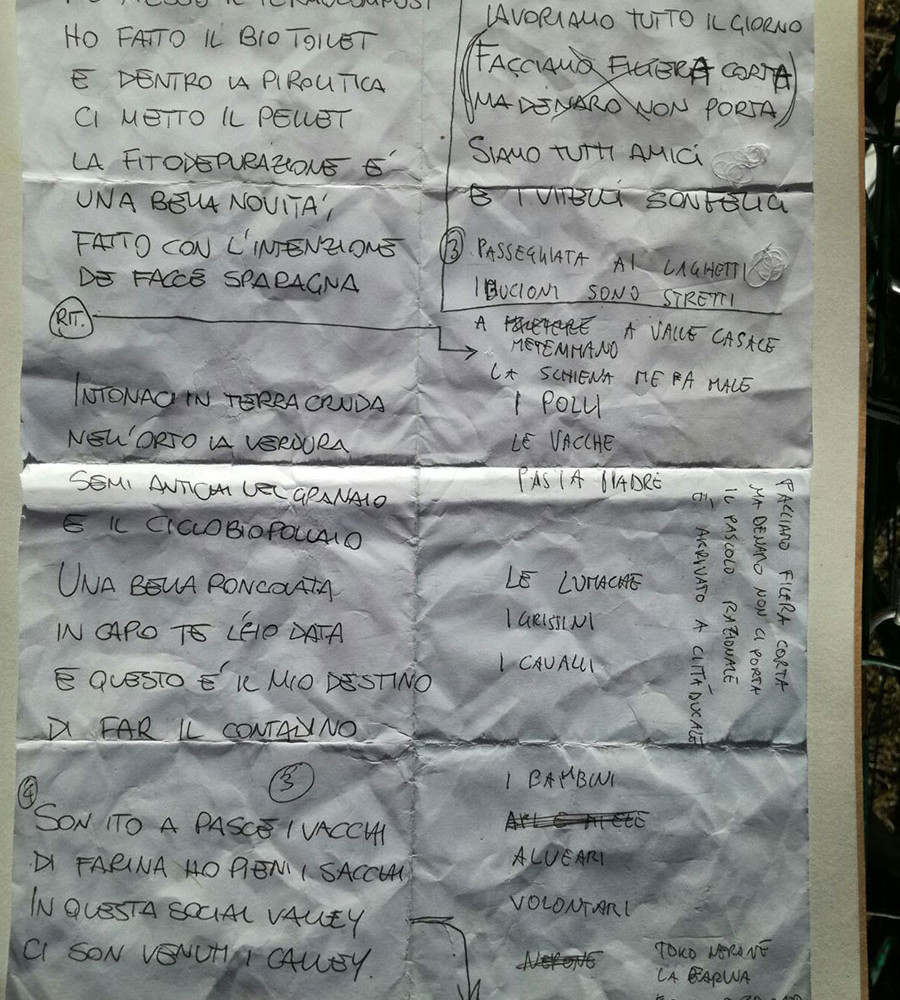 HO FATTO IL BIOTOILET
E DENTRO LA PIROLITICA
CI METTO IL PELLET
LA FITODEPURAZIONE E'
UNA BELLA NOVITA',
FATTO CON L'INTENZIONE
DE FACCE SPARAGNA
RIT.
INTONACI IN TERRA CRUDA
NELL'ORTO LA VERDURA
SEMI ANTICHI NEL GRANAIO
E IL CICLOBIOPOLLAIO
UNA BELLA RONCOLATA
IN CAPO TE L'EIO DATA
E QUESTO E' IL MIO DESTINO
DI FAR IL CONTADINO
4
3
SON ITO A PASCE I VACCHI
DI FARINA HO PIENI I SACCHI
IN QUESTA SOCIAL VALLEY
CI SON VENUTI I CALLEY.
LAVORIAMO TUTTO IL GIORNO
(FACCIAMO FILIERA CORTA
MA DENARO NON PORTA)
SIAMO TUTTI AMICI
E I VITELLI SON FELICI
3 PASSEGGIATA AI LAGHETTI
I BUCIONI SONO STRETTI
A METEMMANO A VALLE CASALE
LA SCHIENA ME FA MALE
I POLLI
LE VACCHE
PASTA MADRE
LE LUMACHE
I GRISSINI
I CAVALLI
I BAMBINI
ALVEARI
VOLONTARI
NERONE
TOKO NERONE
LA FARINA
FACCIAMO FILIERA CORTA
MA DENARO NON CI PORTA
IL PASCOLO RAZIONALE
E' ARRIVATO A CITTADUCALE